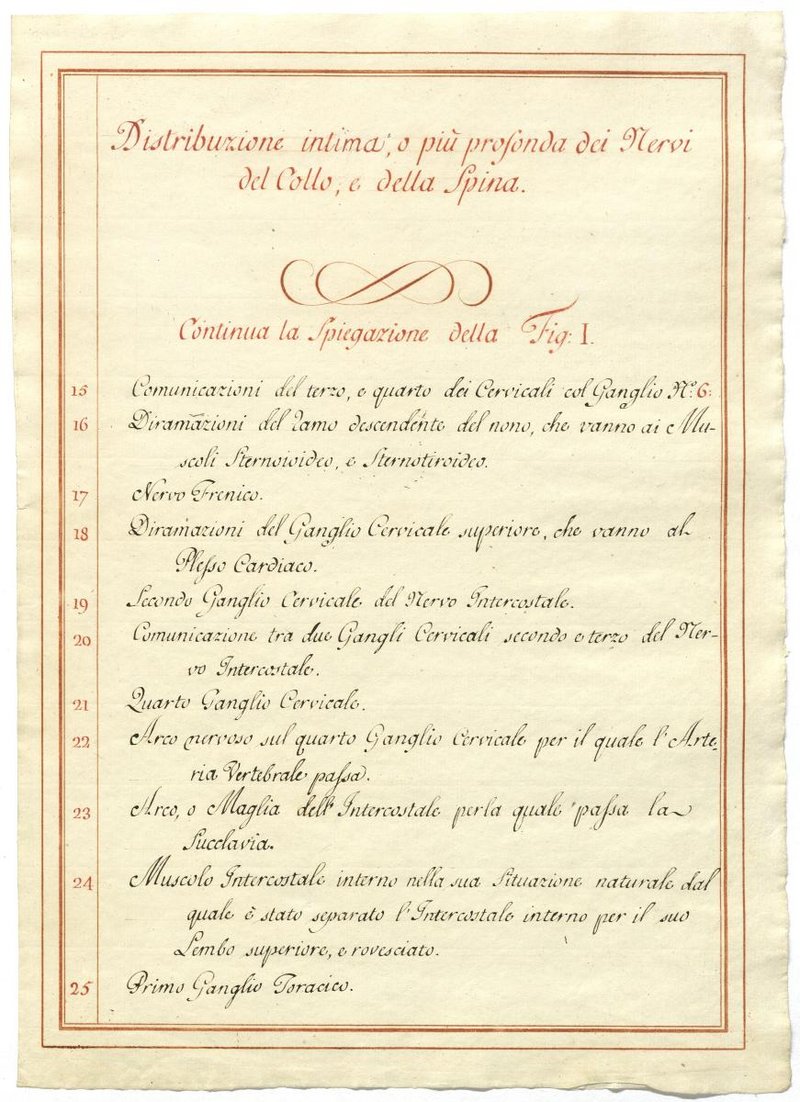 Distribuzione intima, o più profonda dei Nervi
del Collo, e della Spina.
Continua la Spiegazione della Fig: I.
15 Comunicazioni del terzo, e quarto dei Cervicali col Ganglio N.º 6:
16 Diramazioni del Ramo descendente del nono, che vanno ai Mu-
scoli Sternoioideo, e Sternotiroideo.
17 Nervo Frenico.
18 Diramazioni del Ganglio Cervicale superiore, che vanno al
Plesso Cardiaco.
19 Secondo Ganglio Cervicale del Nervo Intercostale.
20 Comunicazione tra due Gangli Cervicali secondo e terzo del Ner-
vo Intercostale.
21 Quarto Ganglio Cervicale.
22 Arco nervoso sul quarto Ganglio Cervicale per il quale l'Arte-
ria Vertebrale passa.
23 Arco, o Maglia dell'Intercostale perla quale passa la
Succlavia.
24 Muscolo Intercostale interno nella sua Situazione naturale dal
quale è stato separato l'Intercostale interno per il suo
Lembo superiore, e rovesciato.
25 Primo Ganglio Toracico.